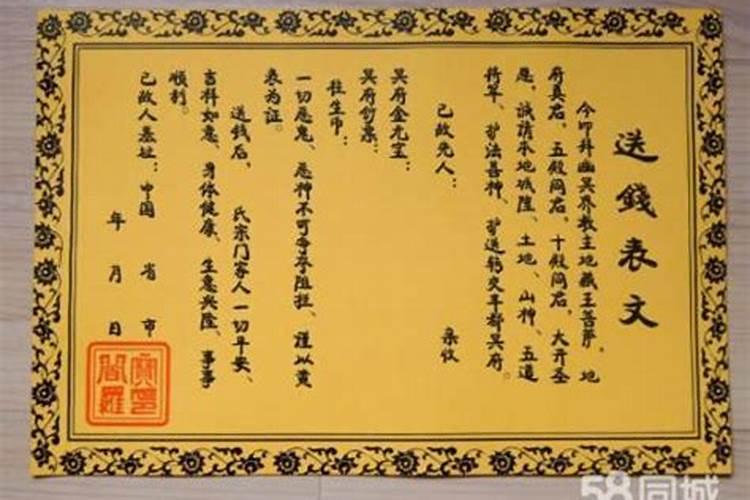 送錢表文
今叩拜幽冥界教主地藏王菩萨，地
府真君，五殿阎君，十殿阎君，大开圣
恩，诚请本地城隍、土地、山神、五道
将军、护法善神，护送转交丰都冥府。
已故先人： 亲收
冥府金元宝：
冥府钞票：
往生币：
一切恶鬼、恶神不可争夺阻拦，谨以黄
表为证。
送钱后， 氏宗门家人一切平安、
吉祥如意、身体健康、生意兴隆、事事
顺利。
已故人墓址：中国 省 市
年 月 日
閻羅
58同城